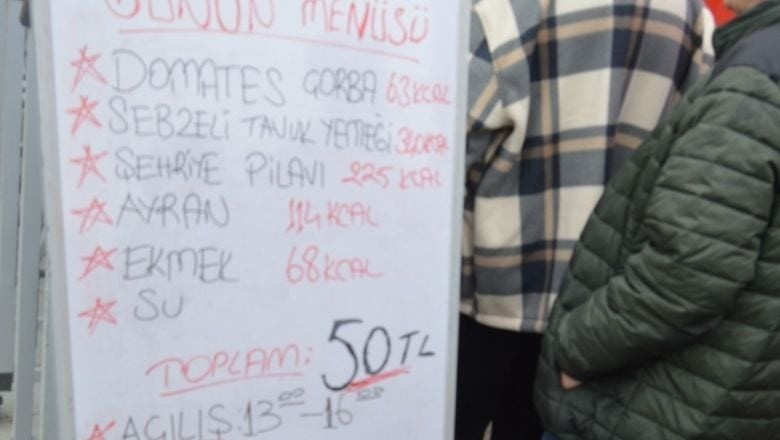 GÜNÜN MENÜSÜ
DOMATES ÇORBA 63 KCAL
SEBZELİ TAVUK YEMEĞİ KCAL
ŞEHRİYE PİLAVI 225 KCAL
AYRAN 114 KCAL
EKMEK 68 KCAL
SU
TOPLAM: 50 TL
AÇILIŞ: 13 00 - 16 00